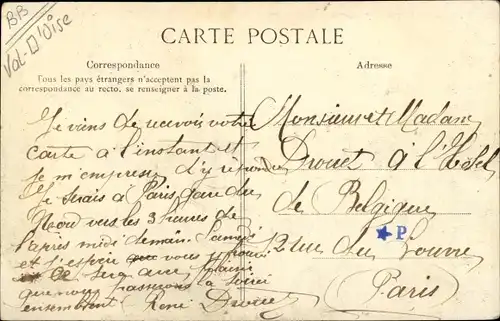 BB
Val-D'Oise
CARTE POSTALE
Correspondance
Tous les pays étrangers n'acceptent pas la
correspondance au recto, se renseigner à la poste.
Adresse
Je viens de recevoir votre
carte à l'instant et
je m'empresse d'y répondre
Je serais à Paris gare du
Nord vers les 3 heures de
l'après midi demain Samedi
et j'espère que vous
ce sera avec plaisir
que nous passerons la soirée
ensemble René Drouet
Monsieur et Madame
Drouet à l'Hotel
de Belgique
P
12 rue du Louvre
Paris